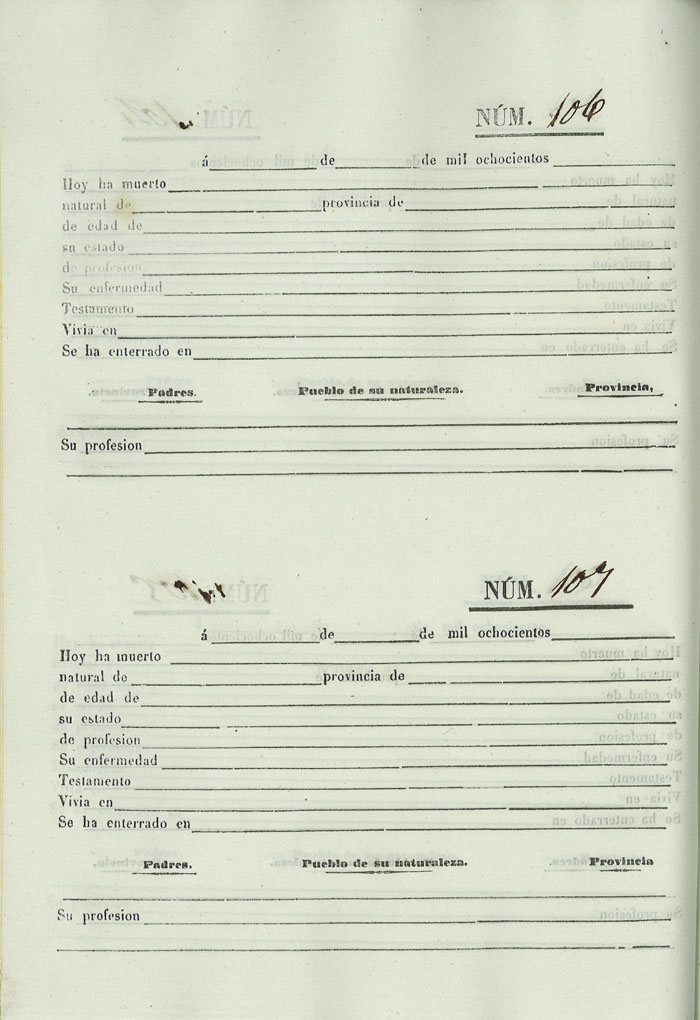 NÚM. 106
á de de mil ochocientos
Hoy ha muerto
natural de provincia de
de edad de
su estado
de profesion
Su enfermedad
Testamento
Vivia en
Se ha enterrado en
Padres. Pueblo de su naturaleza. Provincia,
Su profesion
NÚM. 107
á de de mil ochocientos
Hoy ha muerto
natural de provincia de
de edad de
su estado
de profesion
Su enfermedad
Testamento
Vivia en
Se ha enterrado en
Padres. Pueblo de su naturaleza. Provincia
Su profesion